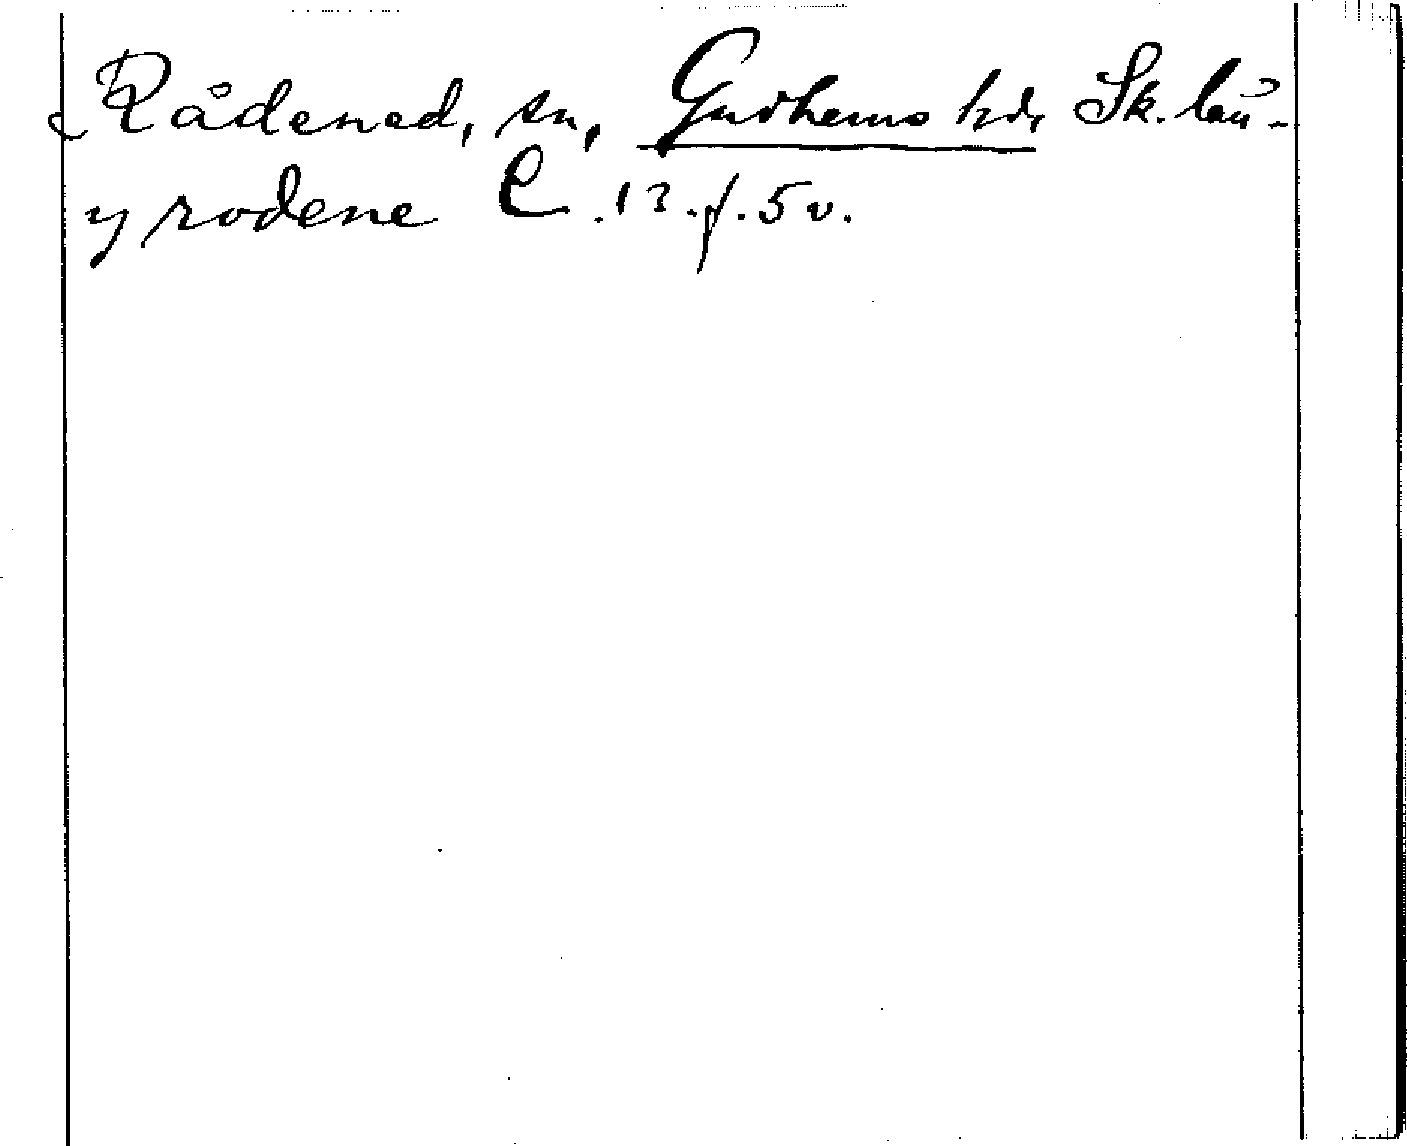 Rådened, sn, Gudhems hd, Sk. län.
y rodene C. 13. f. 5 v.